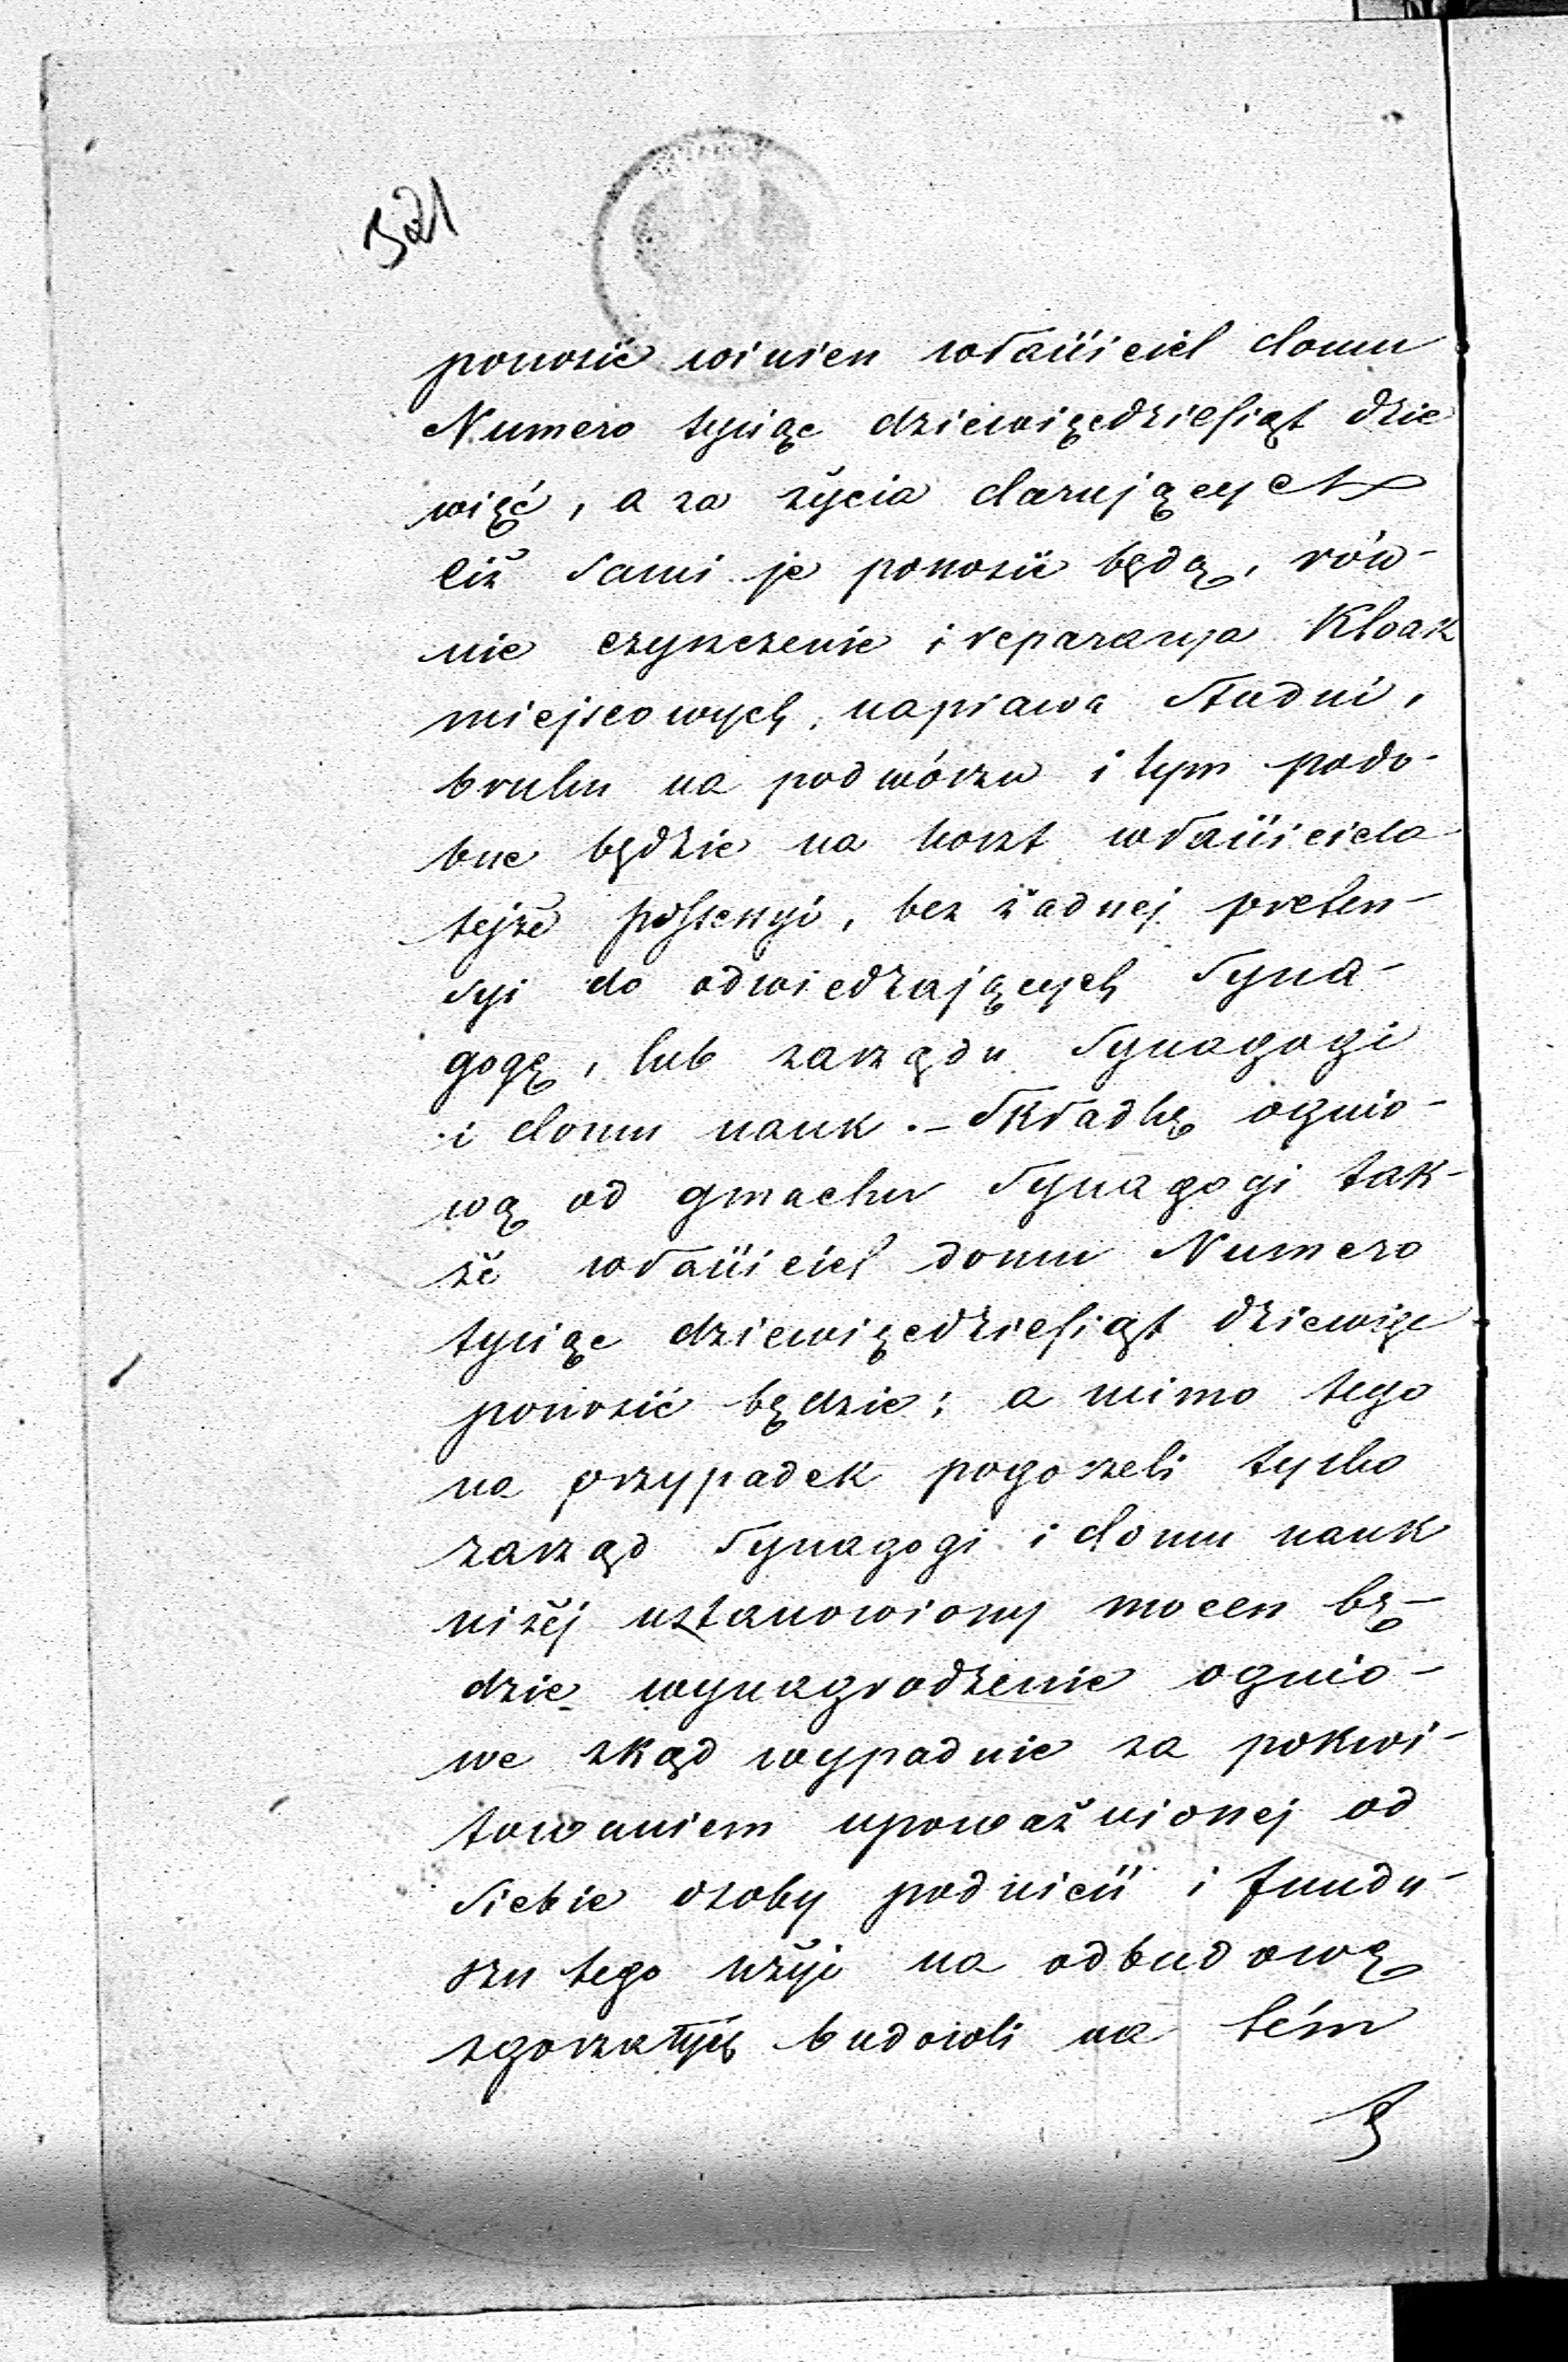 321
ponosić winien właściciel domu
Numero tysiąc dziewięćdziesiąt dzie
więć, a za życia darujących
ciż sami je ponosić będą, rów-
nie czyszczenie i reparacya Kloak
miejscowych, naprawa Studni,
bruku na podwórzu i tym podo-
bne będzie na koszt właściciela
tejże possessyi, bez żadnej preten-
syi do odwiedzających Syna-
gogę, lub zarządu Synagogi
i domu nauk.– Składkę ognio-
wą od gmachu Synagogi tak-
że właściciel domu Numero
tysiąc dziewięćdziesiąt dziewięć
ponosić będzie; a mimo tego
na przypadek pogorzeli tylko
zarząd Synagogi i domu nauk
niżéj ustanowiony mocen bę-
dzie wynagrodzenie ognio-
we zkąd wypadnie za pokwi-
towaniem upoważnionej od
Siebie osoby podnieść i fundu-
szu tego użyć na odbudowę
zgorzałych budowli na tém